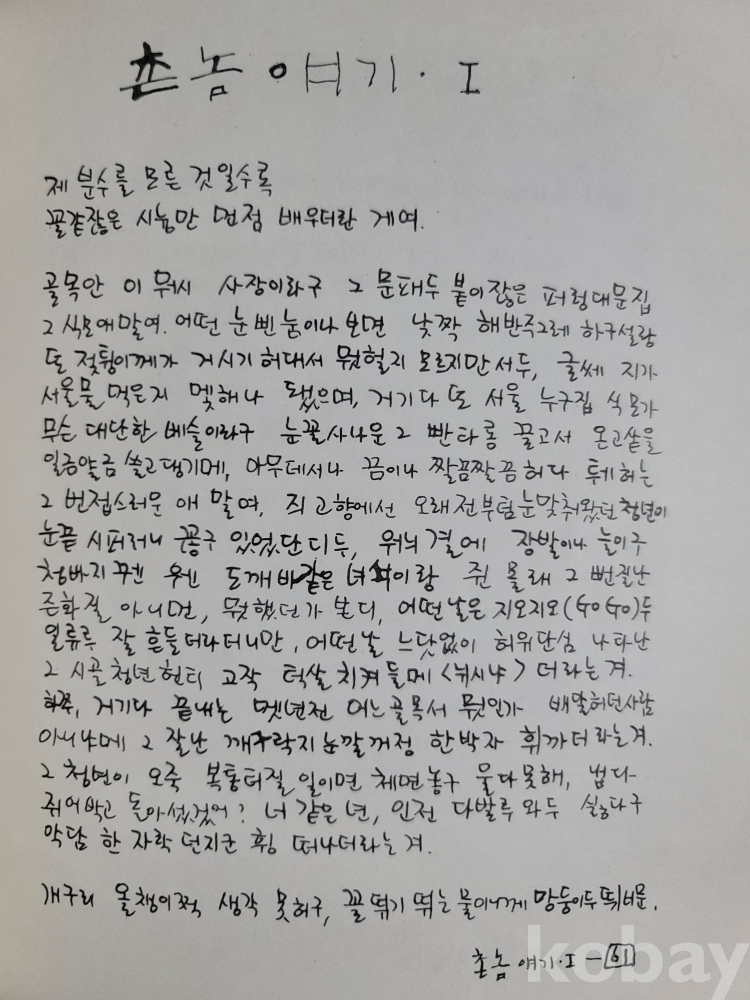 촌놈 얘기·I
제 분수를 모른 것일수록
꼴같잖은 시늉만 먼점 배우더란 게여.
골목안 이 뭐시 사장이라구 그 문패두 붙이잖은 퍼렁대문집
그 식모애말여. 어떤 눈삔 눔이나 보면 낯짝 해반주그레 하구설랑
또 젖퉁이께가 거시기 허대서 뭔헐지 모르지만서두, 글쎄 지가
서울물 먹은지 몇해나 됐으며, 거기다 또 서울 누구집 식모가
무슨 대단한 베슬이라구 눈꼴사나운 그 빤타롱 끌고서 온고샅을
일곰얄곰 쓸고댕기메, 아무데서나 껌이나 짤끔짤끔허다 퉤허는
그 번접스러운 애 말여, 즤 고향에선 오래전부텀 눈맞춰왔던 청년이
눈끝 시퍼러니 꽁구 있었단디두, 워늬 결에 장발이나 늘이구
청바지 꾸멘 웬 도깨비같은 녀석이랑 쥔 몰래 그 뻔질난
즌화질 아니먼, 뭣했던가 본디, 어떤날은 지오지오(GoGo)두
일류루 잘 흔들더라더니만, 어떤날 느닷없이 허위단심 나타난
그 시골청년헌티 고작 턱살 치켜들메 <뉘시냐> 더라는겨.
하쭈, 거기다 끝내는 몟년전 어느골목서 뭣인가 배달허던사람
아니냐메 그 잘난 깨구락지눈깔꺼정 한박자 휘까더라는겨.
그 청년이 오죽 복통터질 일이면 체면놓구 울다못해, 냅다
쥐어박고 돌아섰겄어? 너 같은 년, 인전 다발루 와두 싫다구
악담 한 자락 던지군 휭 떠나더라는겨.
개구리 올챙이쩍 생각 못허구, 꼴뚜기 뛰는 물이니께 망둥이두 뛰너문.
촌놈 얘기·I — 61
kobay